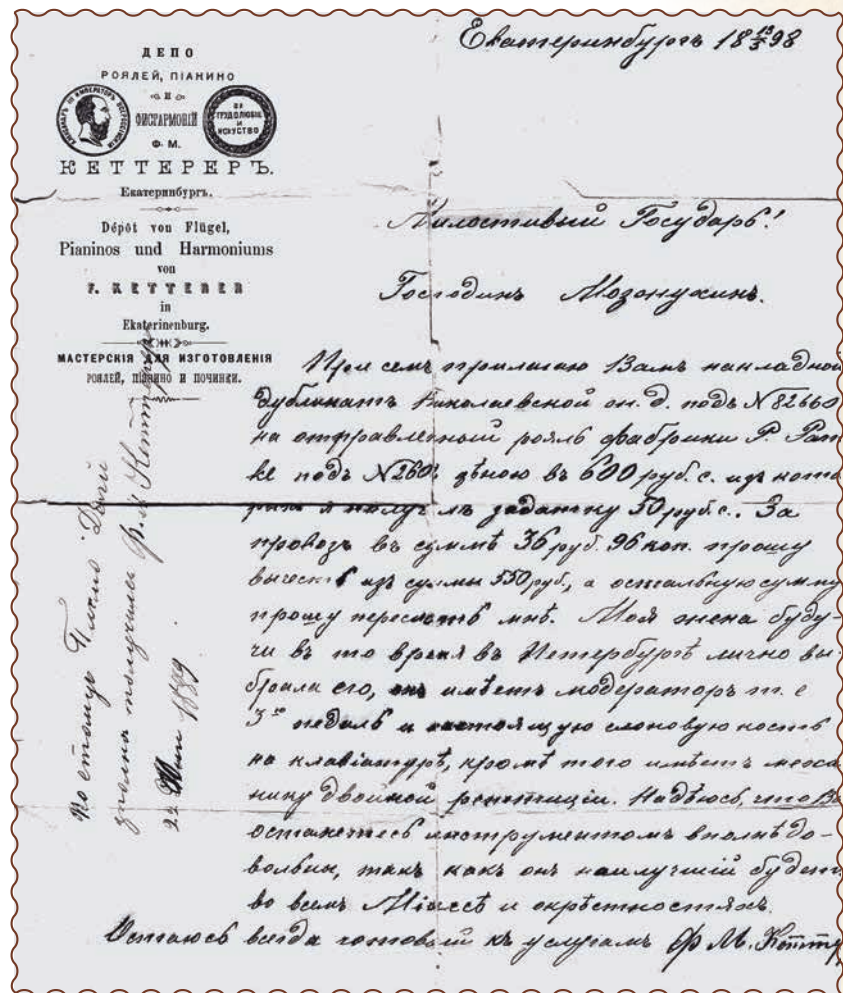 ДЕПО
РОЯЛЕЙ, ПІАНИНО
И
ФИСГАРМОНІЙ
Ф. М.
КЕТТЕРЕРЪ.
Екатеринбургъ.
Dépôt von Flügel,
Pianinos und Harmoniums
von
F. KETTERER
in
Ekaterinenburg.
МАСТЕРСКІЯ ДЛЯ ИЗГОТОВЛЕНІЯ
РОЯЛЕЙ, ПІАНИНО И ПОЧИНКИ.
ЗА ТРУДОЛЮБІЕ И ИСКУСТВО
Екатеринбургъ 18 13/5 98
Милостивый Государь!
Господинъ Мозжухинъ.
При семъ прилагаю Вамъ накладной
дубликатъ Николаевской ж. д. подъ № 82660
на отправленный рояль фабрики Р. Рат
ке подъ № 260 цѣною въ 600 руб. с. изъ кото
рыхъ я получилъ задатку 50 руб. с. За
провозъ въ суммѣ 36 руб. 96 коп. прошу
вычесть изъ суммы 550 руб., а остальную сумму
прошу переслать мнѣ. Моя жена буду-
чи въ то время въ Петербургѣ лично вы-
брала его, онъ имѣетъ модераторъ т. е
3ю педаль и настоящую слоновую кость
на клавіатурѣ, кромѣ того имѣетъ меха
нику двойной репетиціи. Надѣюсь, что Вы
останетесь инструментомъ вполнѣ до-
вольны, такъ какъ онъ наилучшій будетъ
во всемъ Міассѣ и окрѣстностяхъ.
Остаюсь всегда готовый къ услугамъ Ф. М. Кеттер
по етому
получилъ Ф. М. Кеттереръ
22 1899